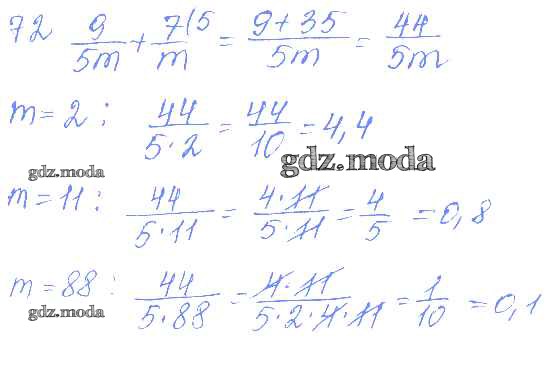 72 9/5m + 7(5/m = 9+35/5m = 44/5m
m=2: 44/5·2 = 44/10 = 4,4
gdz.moda
gdz.moda
m=11: 44/5·11 = 4·11/5·11 = 4/5 = 0,8
m=88: 44/5·88 = 4·11/5·2·4·11 = 1/10 = 0,1
gdz.moda